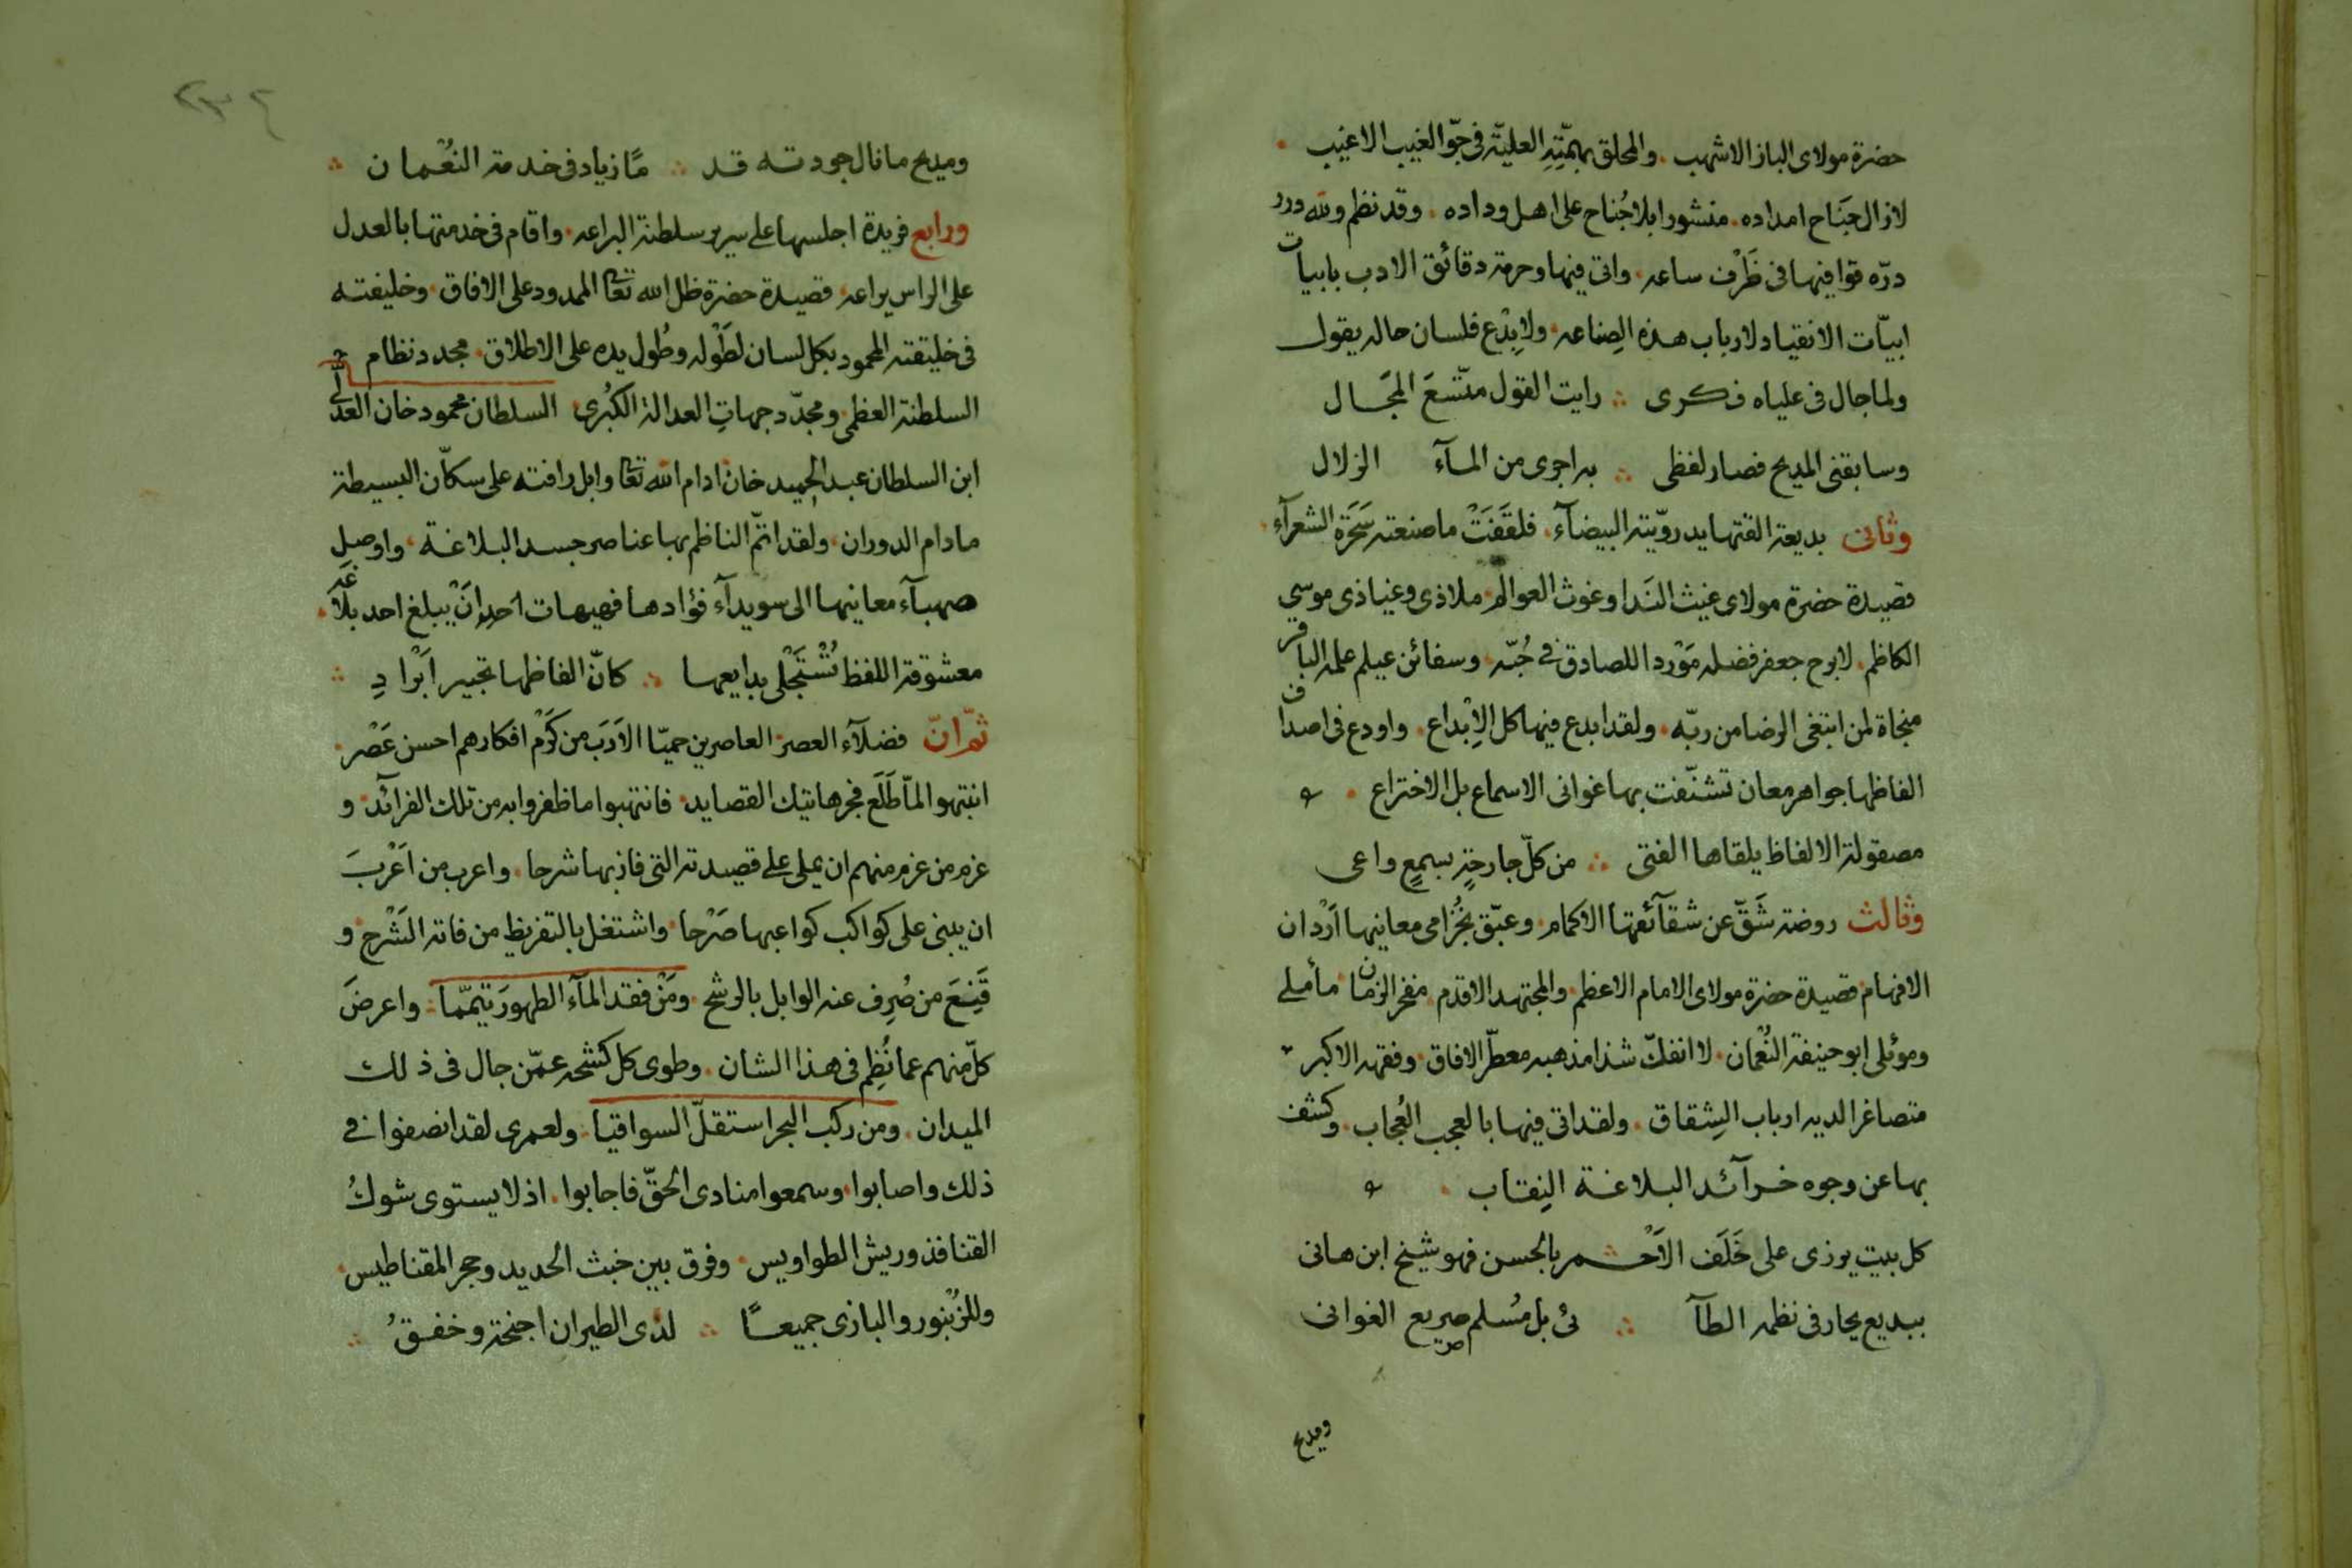 حضرة مولاى الباز الاشهب . والمحلق بهمّتِهِ العليّة فى جوّ الغيب الاغيب .
لازال جَنَاح امداده . منشورا بلا جُناح على اهل وداده . وقد نظم ولله درر
درّه قوافيها فى ظَرْف ساعه . واتى فيها وحرمة دقائق الادب بابيات
ابيّات الانقياد لارباب هذه الصِناعه . ولا بِدْع فلسان حاله يقول
ولما جال فى علياه فكرى ∴ رايت القول متّسَعَ المجَال
وسابقنى المديح فصار لفظى ∴ به اجرى من المآء الزلال
وثانى بديعة القتها يد رويّته البيضآء . فلقَفَتْ ما صنعته سَحَرَة الشعرآء .
قصيدة حضرة مولاى غيث النَدا وغوث العوالم . ملاذى وغياذى موسي
الكاظم . لابرح جعفر فضله مَوْردا للصادق فى حُبّه . وسفائن عيلم علمه الباقر
منجاة لمن ابتغى الرضا من ربّه . ولقد ابدع فيها كل الاِبْداع . واودع فى اصداف
الفاظها جواهر معان تشنّفت بها غوانى الاسماع بل الاختراع .
مصقولة الالفاظ يلقاها الفتى ∴ من كلّ جارحةٍ بسمعٍ واعى
وثالث روضة شَقّ عن شقآئقها الاكمام . وعبّق بخُزامى معانيها اَرْدان
الافهام . قصيدة حضرة مولاى الامام الاعظم . والمجتهد الاقدم . مفخر الزمان مأملى
وموئلى ابو حنيفة النُعْمان . لا انفكّ شذا مذهبه معطّر الافاق . وفقهه الاكبر
متصاغرا لديه ارباب الشِقاق . ولقد اتى فيها بالعجب العُجاب . وكشف
بها عن وجوه خرآئد البلاغة النِقاب .
كل بيت يوزى على خَلَف الاَحْمر بالحسن فهو شيخ ابن هانى
ببديع يحار فى نظمه الطآ ∴ ئى بل مُسلم صريع الغوانى
ومديح
ومديح ما نال جودته قد ∴ مًا زياد فى خدمة النعْمان ∴
ورابع فريدة اجلسها على سرير سلطنة البراعه . واقام فى خدمتها بالعدل
على الراس يراعه . قصيدة حضرة ظل الله تعالى الممدود على الافاق . وخليفته
فى خليقته المحمود بكل لسان لطَوْله وطُول يده على الاطلاق . مجدد نظام
السلطنة العظمى . ومجدّد جهاتِ العدالة الكبُرى . السلطان محمود خان العدلى
ابن السلطان عبد الحميد خان ادام الله تعالى وابل رافته على سكاّن البسيطة
مادام الدوران . ولقد اتمّ الناظم بها عناصر جسد البلاغة . واوصل
صهبآء معانيها الى سويدآء فؤادها فهيهات احد انْ يبلغ احد بلاغه .
معشوقة اللفظ تُسْتَجْلى بدايعها ∴ كانّ الفاظها تحبير ابْرادِ ∴
ثمّ انّ فضلآء العصر . العاصرين حميّا الاَدَب من كَرْم افكارهم احسن عَصْر .
انتبهوا لمّا طَلَع فجر هاتيك القصايد . فانتهبوا ما ظفروا به من تلك الفرائد . و
عزم من عزم منهم ان يملى على قصيدته التى فاز بها شرحا . واعرب من اَعْربَ
ان يبنى على كواكب كواعبها صَرْحا . واشتغل بالتقريظ من فاته الشَرْح . و
قَنِعَ من صُرِف عنه الوابل بالرشح . ومَنْ فقد المآء الطهورَ تيممّا . واعرضَ
كلّ منهم عما نُظِم فى هذا الشان . وطوى كل كشحه عمّن جال فى ذلك
الميدان . ومن ركب البحر استقلّ السواقيا . ولعمرى لقد انصفوا فى
ذلك واصابوا . وسمعوا منادى الحقّ فاجابوا . اذ لا يستوى شوكُ
القنافذ وريش الطواويس . وفرق بين خبث الحديد وحجر المقناطيس .
وللزُنْبور والبازى جميعًا ∴ لدى الطيران اجنحة وخفقُ ∴